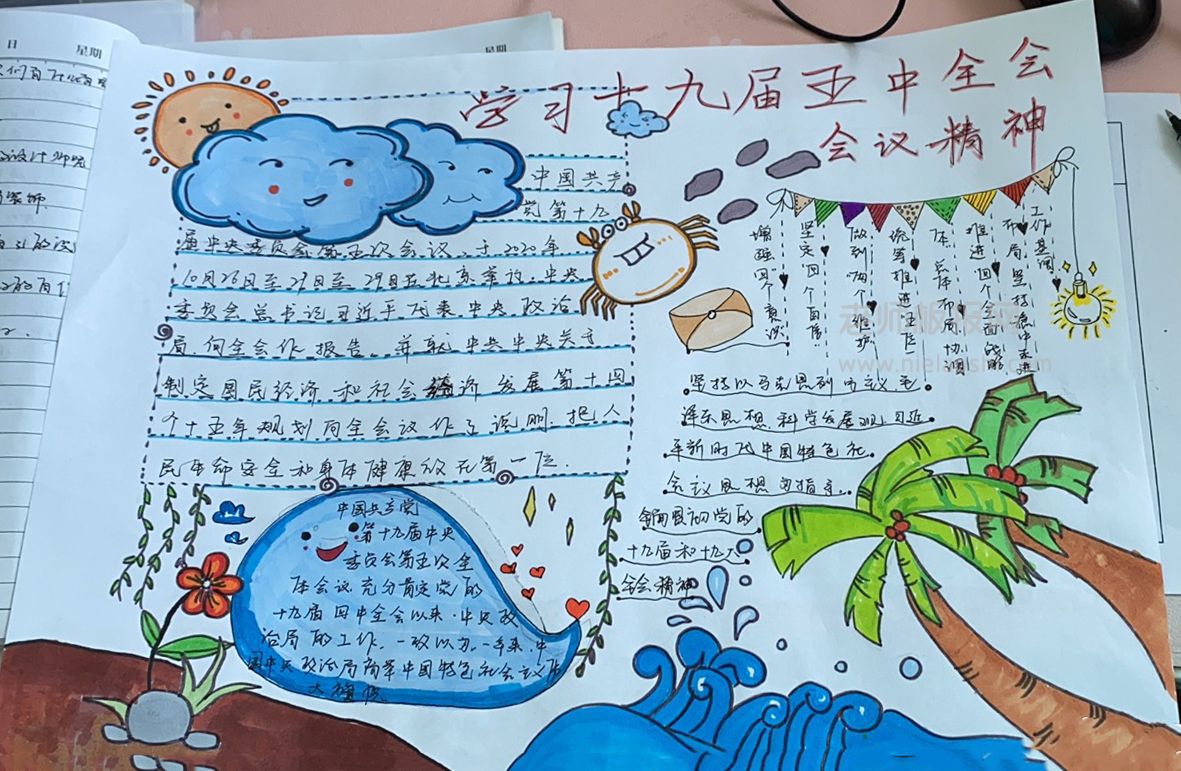 日 星期
星期
学习十九届五中全会
会议精神
中国共产
党第十九
届中央委员会第五次会议,于2020年
10月26日至29日至29日在北京举行.中央
委员会总书记习近平代表中央政治
局.向全会作报告.并就中共中央关于
制定国民经济和社会经济发展第十四
个十五年规划向全会议作了说明.把人
民生命安全和身体健康放在第一位.
增强四个意识
坚定四个自信
做到两个维护
统筹推进五位
体总体布局协调
推进四个全面战略
布局坚持稳中求进
工作基调
坚持以马克思列宁主义毛
泽东思想科学发展观习近
平新时代中国特色社
会议思想为指导.
全面贯彻党的
十九届和十九大
全会精神
中国共产党
第十九届中央
委员会第五次全
体会议充分肯定党的
十九届四中全会以来.中央政
治局的工作.一致认为.一年来.中
国中央政治局高举中国特色社会主义伟
大旗帜